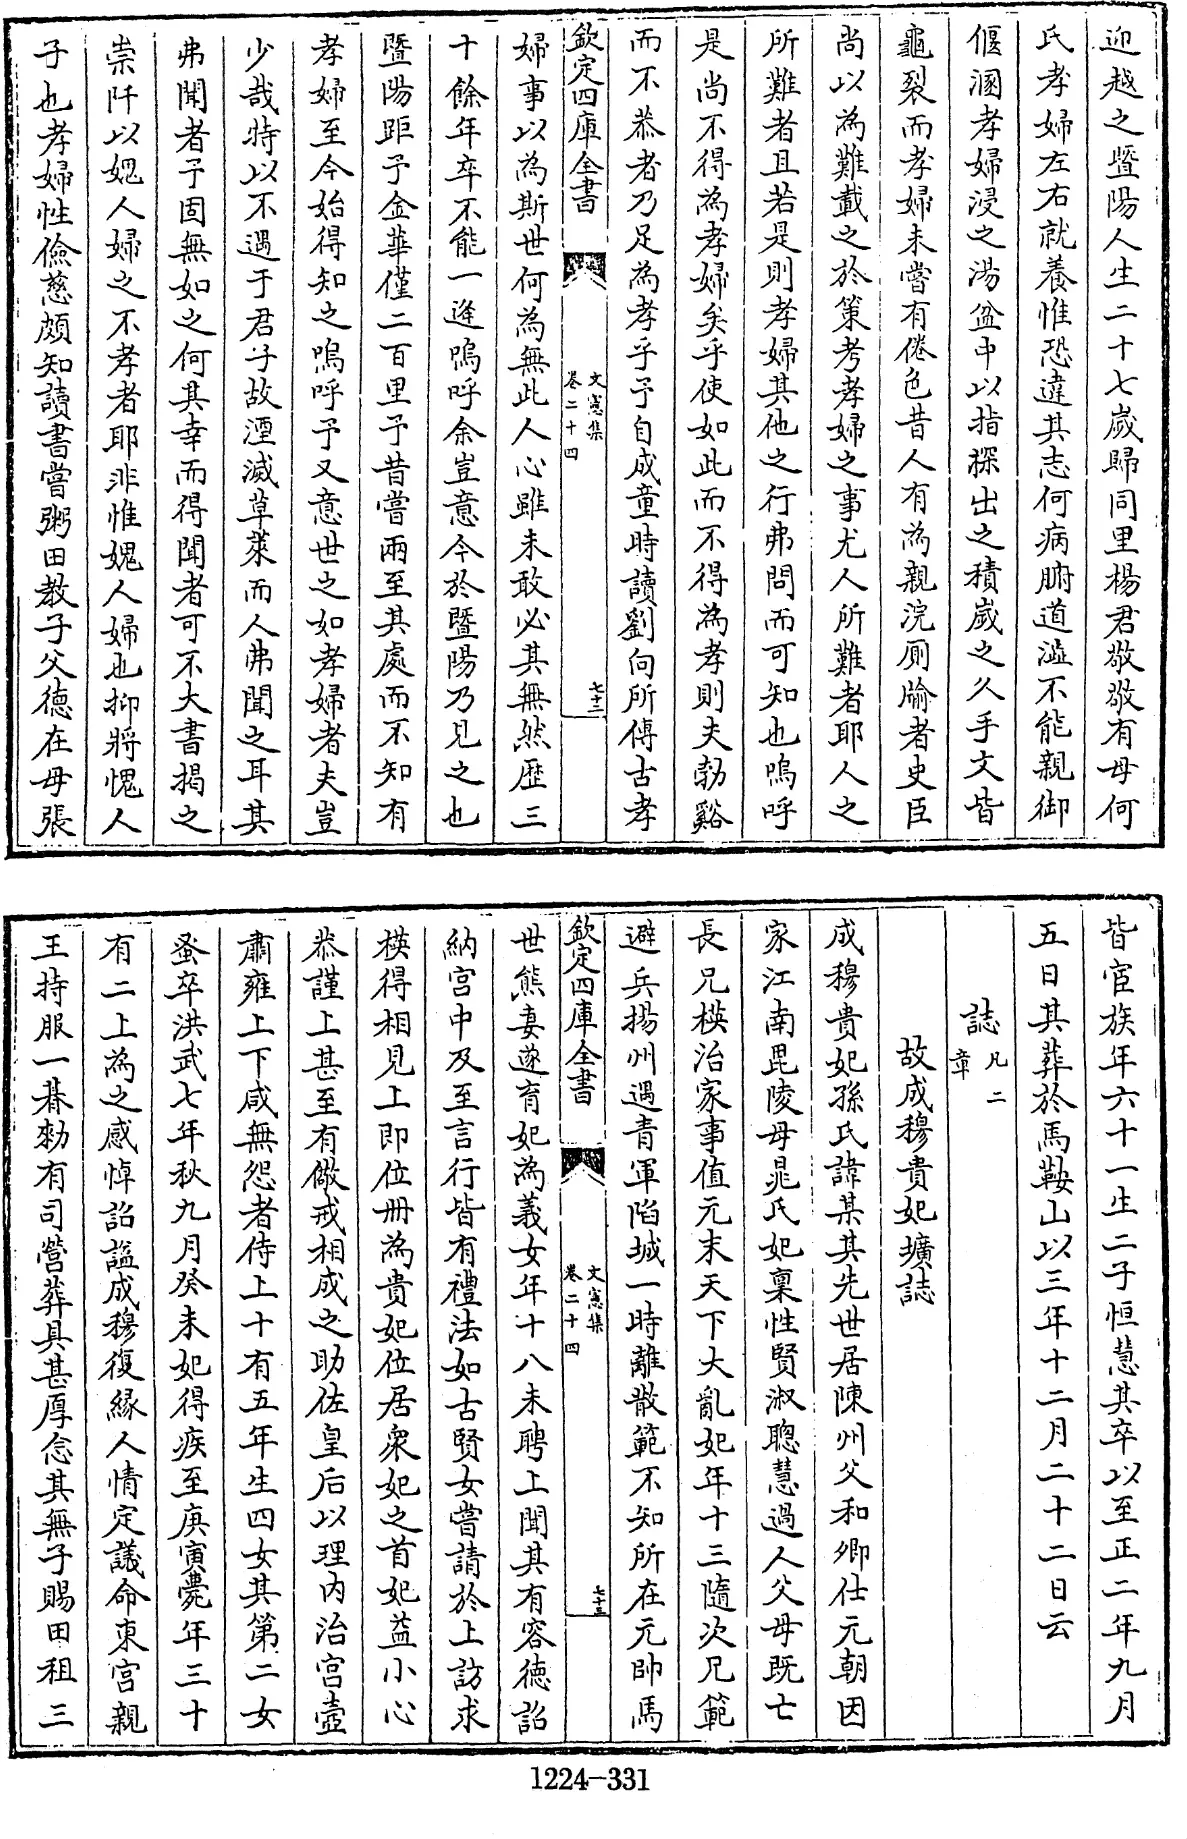 迎越之暨陽人生二十七歲歸同里楊君敬敬有母何
氏孝婦左右就養惟恐違其志何病腑道澁不能親御
偃溷孝婦浸之湯盆中以指探出之積歲之久手文皆
龜裂而孝婦未嘗有倦色昔人有為親浣厠牏者史臣
尚以為難載之於策考孝婦之事尤人所難者耶人之
所難者且若是則孝婦其他之行弗問而可知也嗚呼
是尚不得為孝婦矣乎使如此而不得為孝則夫勃谿
而不恭者乃足為孝乎予自成童時讀劉向所傳古孝
欽定四庫全書
文憲集
卷二十四
七十二
婦事以為斯世何為無此人心雖未敢必其無然歷三
十餘年卒不能一逢嗚呼余豈意今於暨陽乃見之也
暨陽距予金華僅二百里予昔嘗兩至其處而不知有
孝婦至今始得知之嗚呼予又意世之如孝婦者夫豈
少哉特以不遇于君子故湮滅草萊而人弗聞之耳其
弗聞者予固無如之何其幸而得聞者可不大書揭之
崇阡以媿人婦之不孝者耶非惟媿人婦也抑將愧人
子也孝婦性儉慈頗知讀書嘗粥田教子父德在母張
皆宦族年六十一生二子恒慧其卒以至正二年九月
五日其葬於馬鞍山以三年十二月二十二日云
誌凡二章
故成穆貴妃壙誌
成穆貴妃孫氏諱某其先世居陳州父和卿仕元朝因
家江南毘陵母晁氏妃稟性賢淑聰慧過人父母既亡
長兄模治家事值元末天下大亂妃年十三隨次兄範
避兵揚州遇青軍陷城一時離散範不知所在元帥馬
欽定四庫全書
文憲集
卷二十四
七十三
世熊妻遂育妃為義女年十八未聘上聞其有容德詔
納宮中及至言行皆有禮法如古賢女嘗請於上訪求
模得相見上即位冊為貴妃位居衆妃之首妃益小心
恭謹上甚至有儆戒相成之助佐皇后以理内治宮壼
肅雍上下咸無怨者侍上十有五年生四女其第二女
蚤卒洪武七年秋九月癸未妃得疾至庚寅薨年三十
有二上為之感悼詔諡成穆復緣人情定議命東宮親
王持服一朞勑有司營葬具甚厚念其無子賜田租三
1224-331